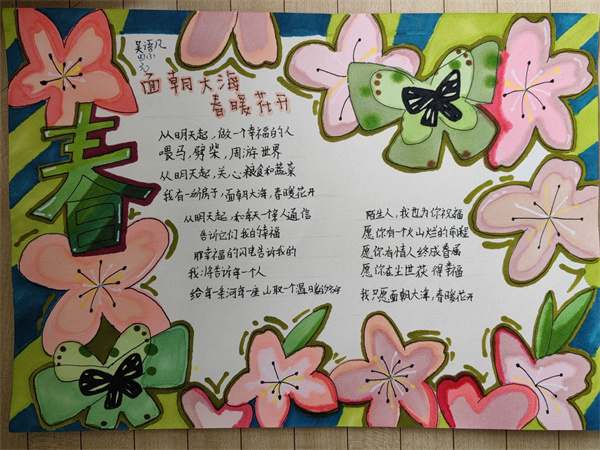 吴语凡
面朝大海
春暖花开
春
从明天起，做一个幸福的人
喂马，劈柴，周游世界
从明天起，关心粮食和蔬菜
我有一所房子，面朝大海，春暖花开
从明天起，和每一个人通信
告诉它们我的幸福
那幸福的闪电告诉我的
我将告诉每一个人
给每一条河每一座山取一个温暖的
陌生人，我也为你祝福
愿你有一个火山烂的前程
愿你有情人终成眷属
愿你在尘世获得幸福
我只愿面朝大海，春暖花开